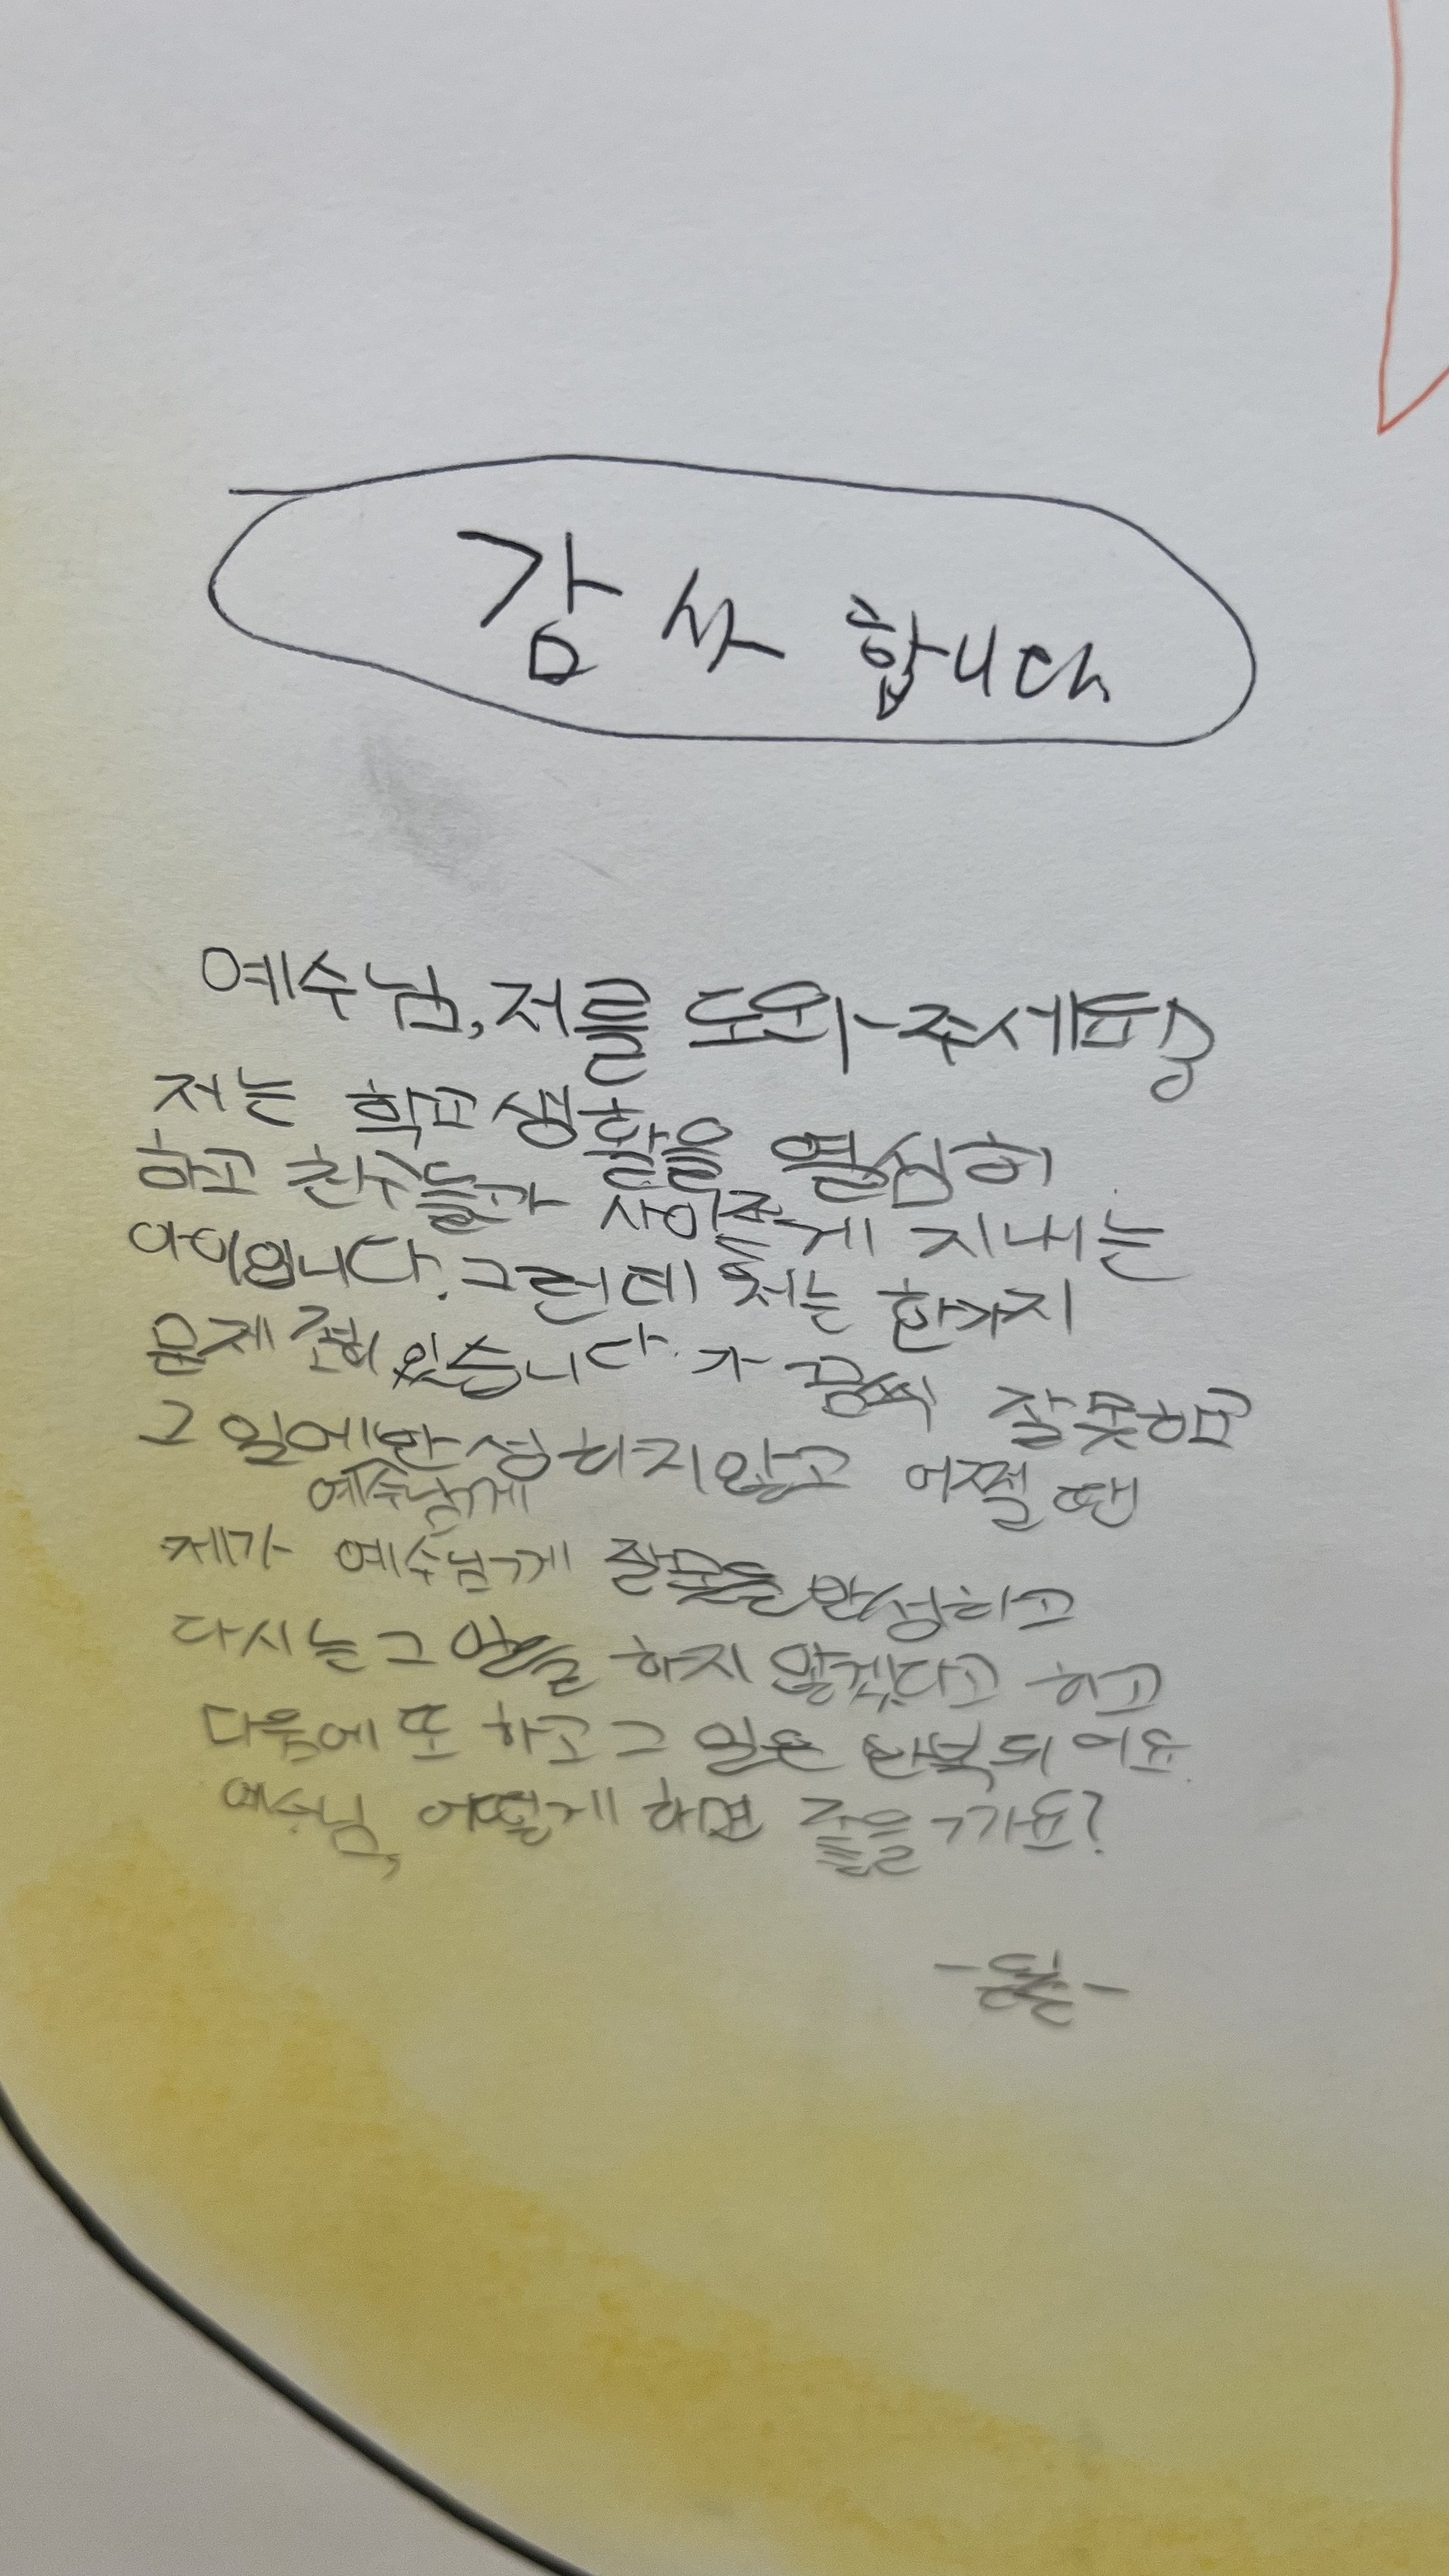 감사합니다
예수님, 저를 도와주세요
저는 학교생활을 열심히
하고 친구들과 사이좋게 지내는
아이입니다. 그런데 저는 한가지
문제 있습니다. 가끔씩 잘못하고
그 일에 반성하지 않고 어쩔 땐
예수님께
제가 예수님께 잘못을 반성하고
다시는 그 일을 하지 않겠다고 하고
다음에 또 하고 그 일은 반복되어요.
예수님, 어떻게 하면 좋을까요?